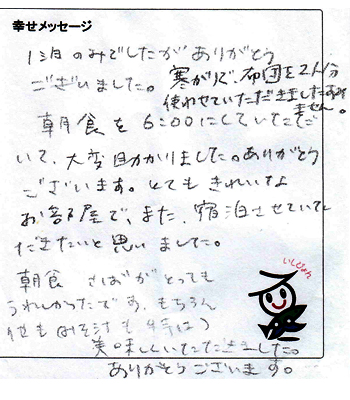 幸せメッセージ
1泊のみでしたがありがとう
ございました。寒がりで、布団を2人分
使わせていただきましたすみ
ません。
朝食を6:00にしていただ
いて、大変助かりました。ありがとう
ございます。とてもきれいな
お部屋で、また、宿泊させていた
だきたいと思いました。
朝食 さばがとっても
うれしかったです。もちろん
他も
美味しくいただきました。
ありがとうございます。